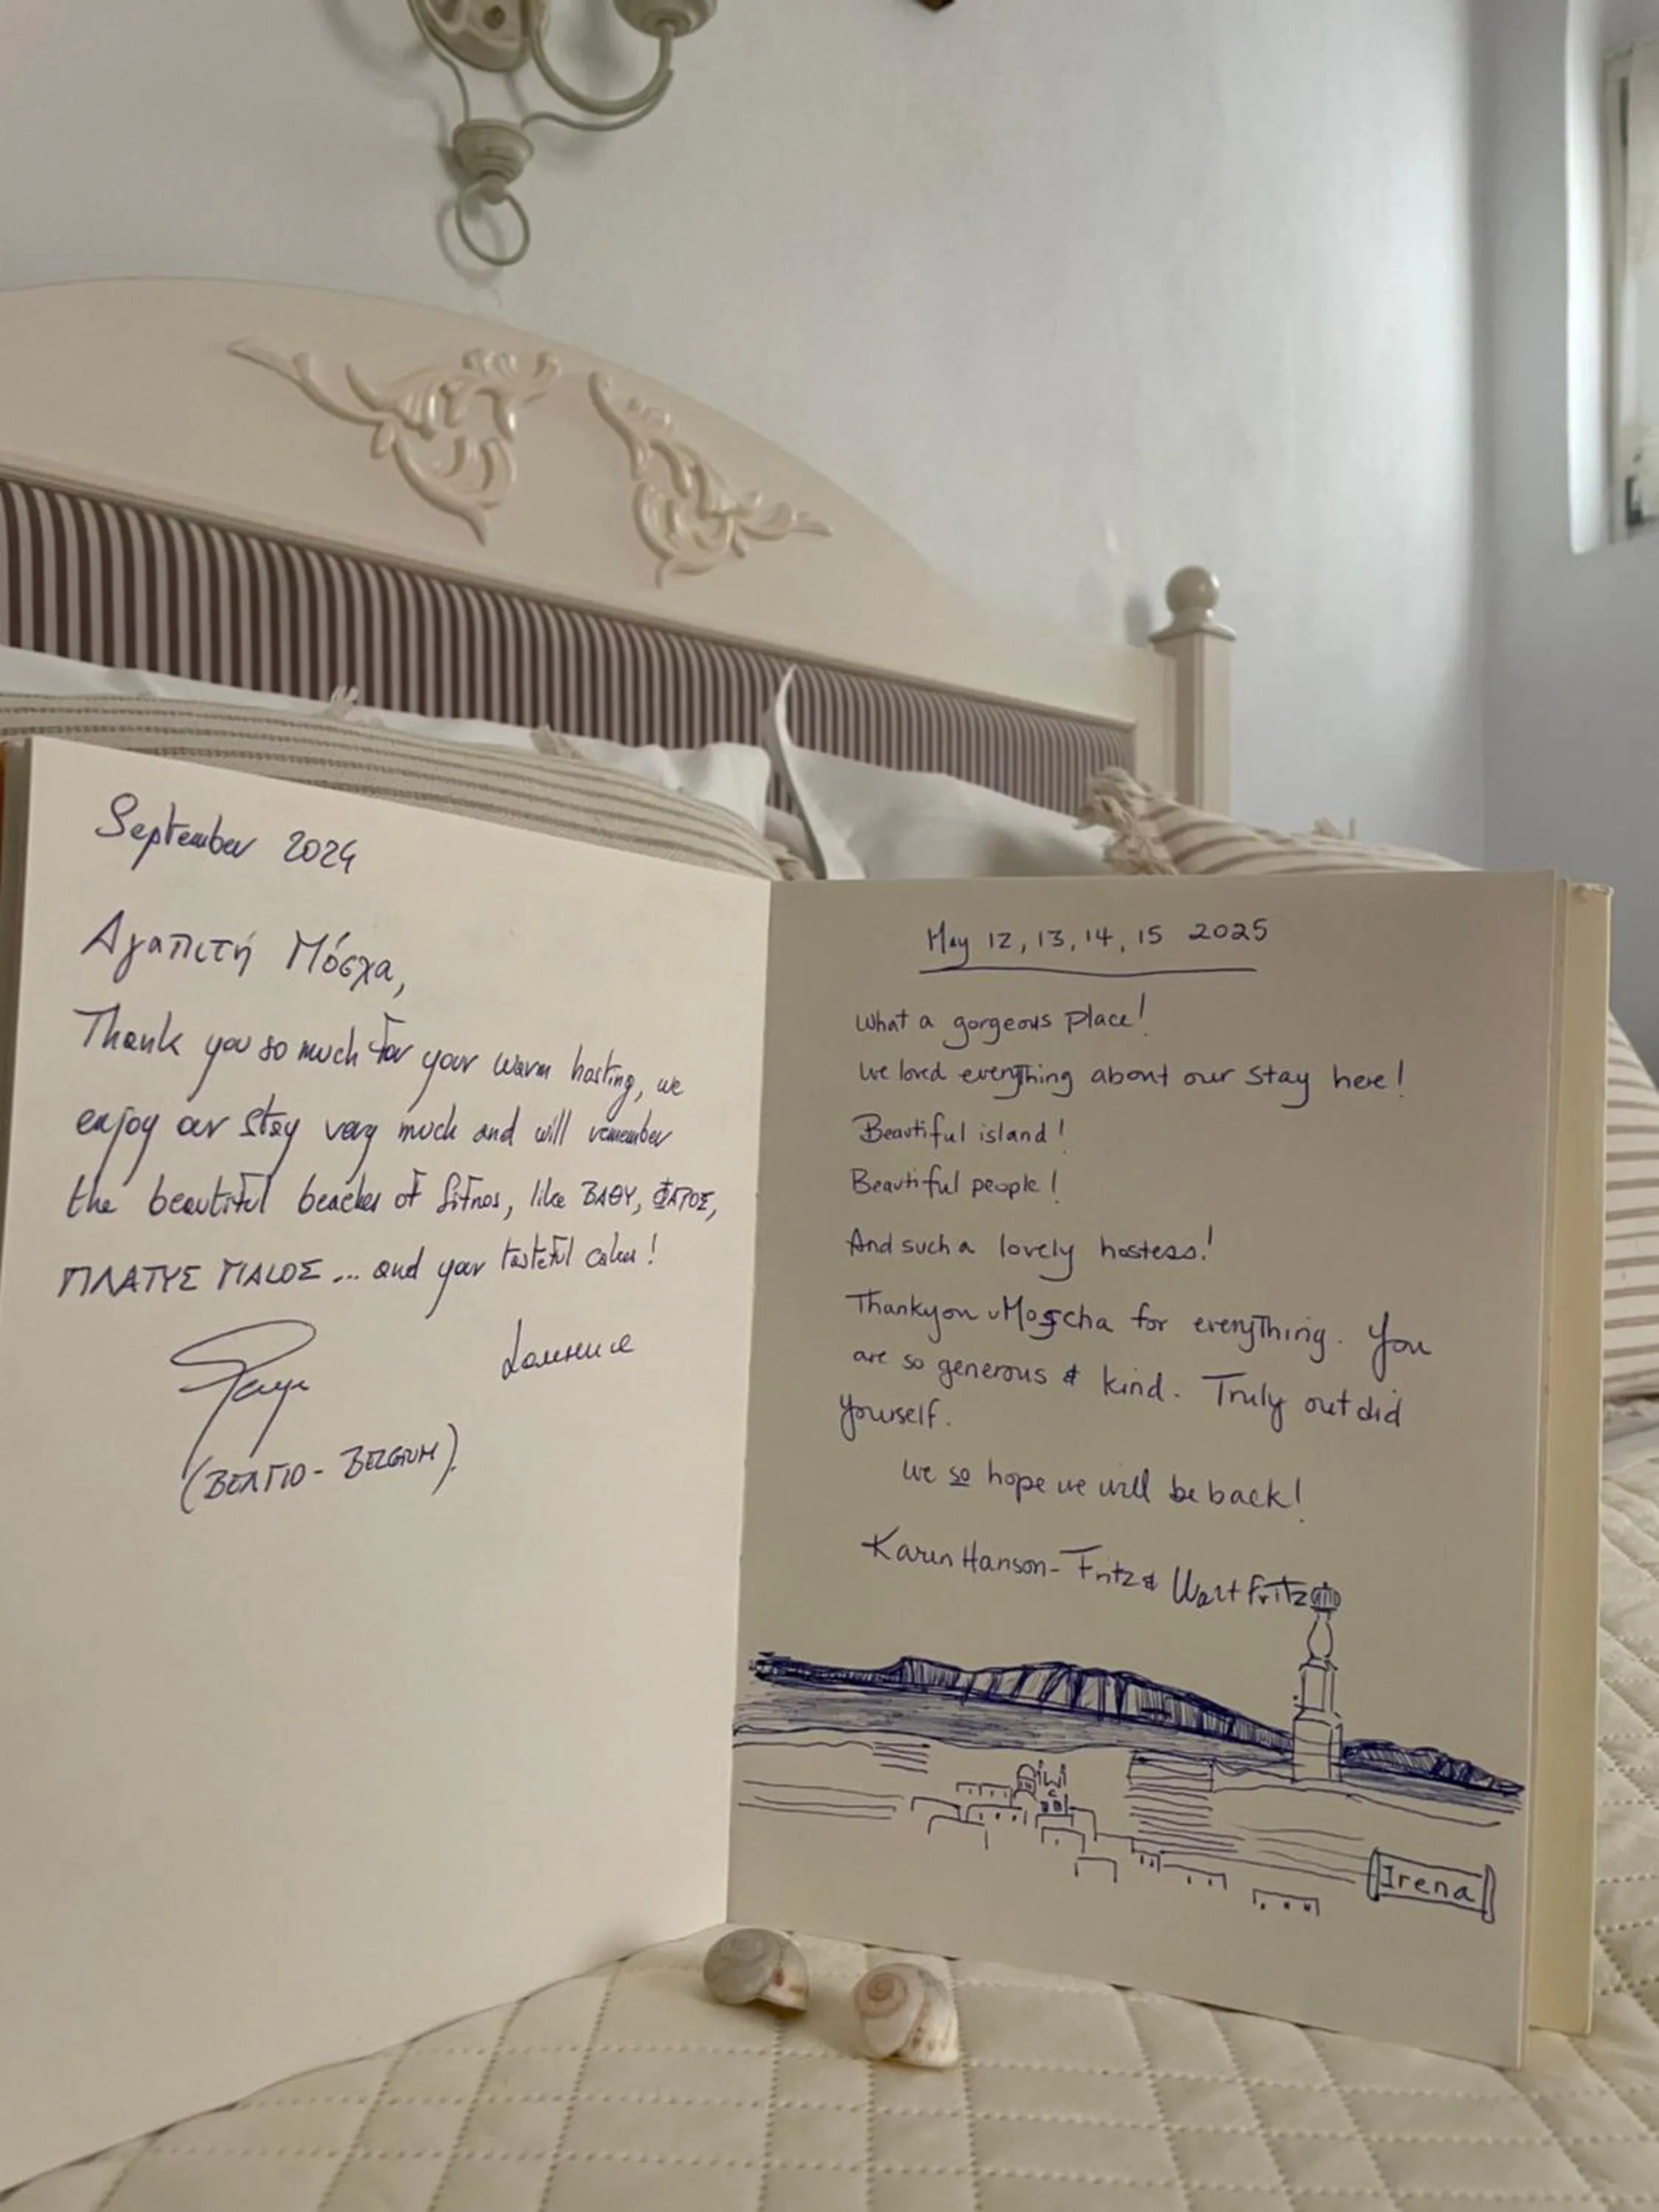 September 2024
Αγαπιτή Μόσχα,
Thank you so much for your warm hosting, we
enjoy our stay very much and will remember
the beautiful beaches of Sifnos, like ΒΑΘΥ, ΦΑΡΟΣ,
ΠΛΑΤΥΣ ΓΙΑLΟΣ ... and your tasteful cakes!
(ΒΕΛΓΙΟ - BELGIUM).
May 12, 13, 14, 15 2025
What a gorgeous place!
We loved everything about our stay here!
Beautiful island!
Beautiful people!
And such a lovely hostess!
Thankyou Moscha for everything. You
are so generous & kind. Truly out did
yourself.
We so hope we will be back!
Karen Hanson-Fritz & Walt Fritz
Irena